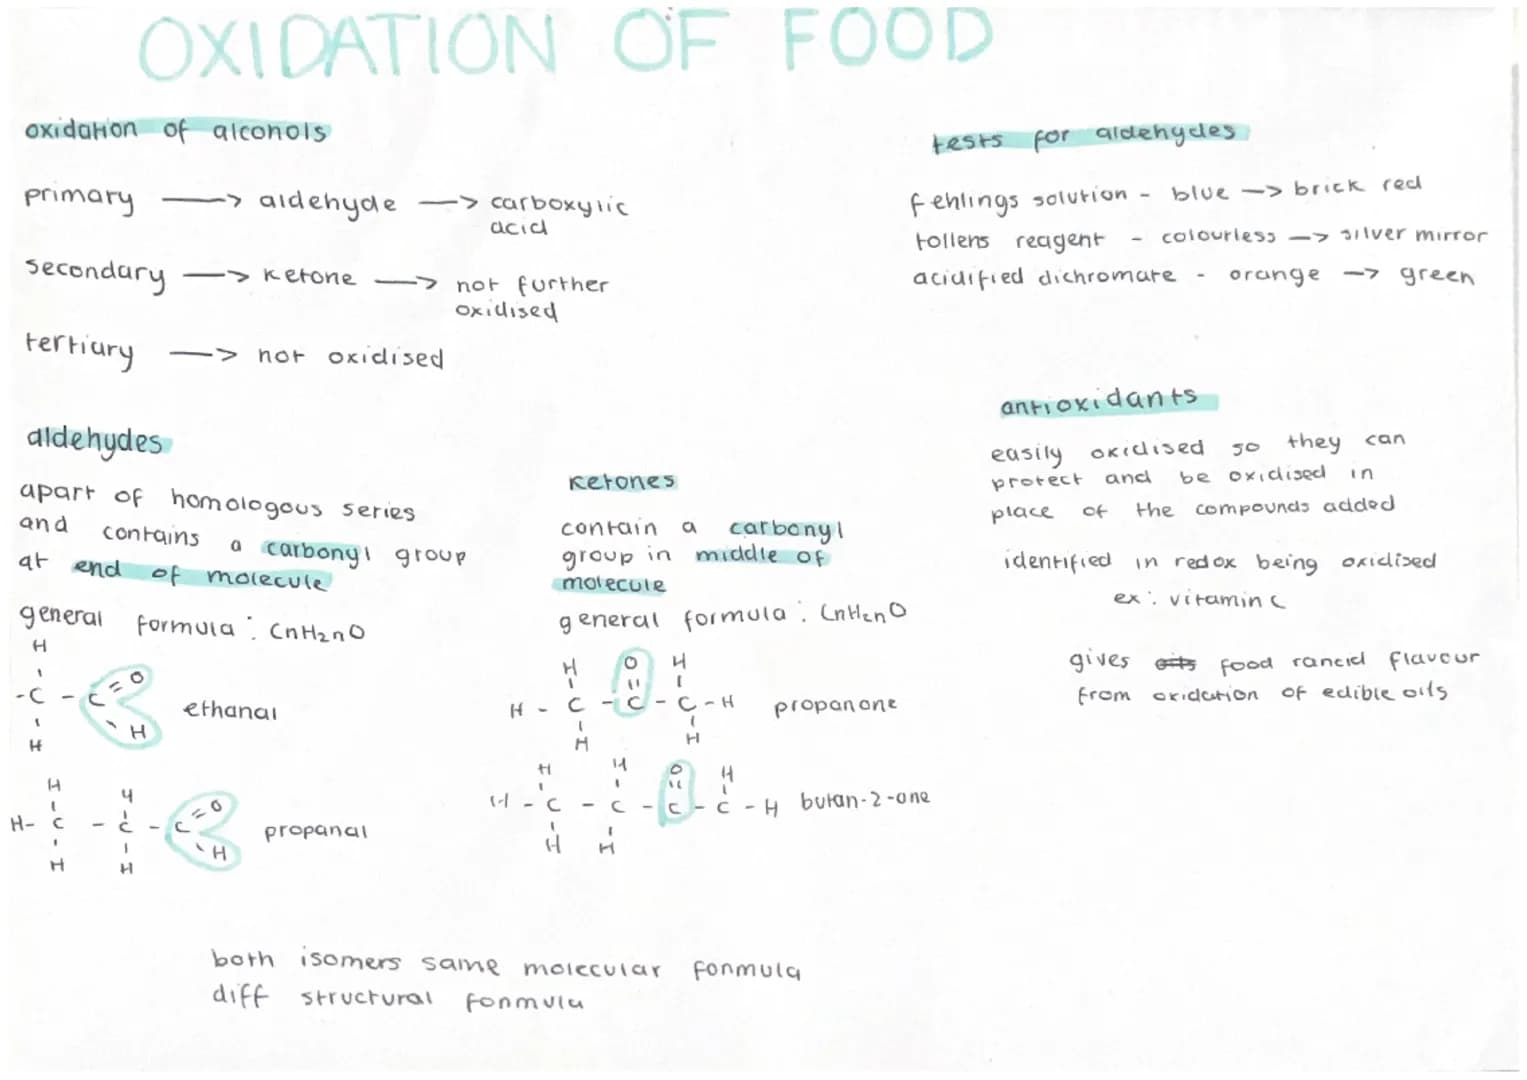 OXIDATION OF FOOD
oxidation of alcohols
primary —> aldehyde —> carboxylic
acid
secondary —> ketone —> not further
oxidised
tertiary —> not oxidised
aldehydes
apart of homologous series
and contains a carbonyl group
at end of molecule
general formula : CnH2nO
H
-C - C = O
H
H
ethanal
H H
H- C - C - C = O
H
H H
propanal
ketones
contain a carbonyl
group in middle of
molecule
general formula : CnH2nO
H O H
H - C - C - C - H propanone
H H
H H O H
H - C - C - C - C - H butan-2-one
H H
both isomers same molecular formula
diff structural formula
tests for aldehydes
fehlings solution - blue —> brick red
tollens reagent - colourless —> silver mirror
acidified dichromate - orange —> green
antioxidants
easily oxidised so they can
protect and be oxidised in
place of the compounds added
identified in redox being oxidised
ex : vitamin C
gives food rancid flavour
from oxidation of edible oils